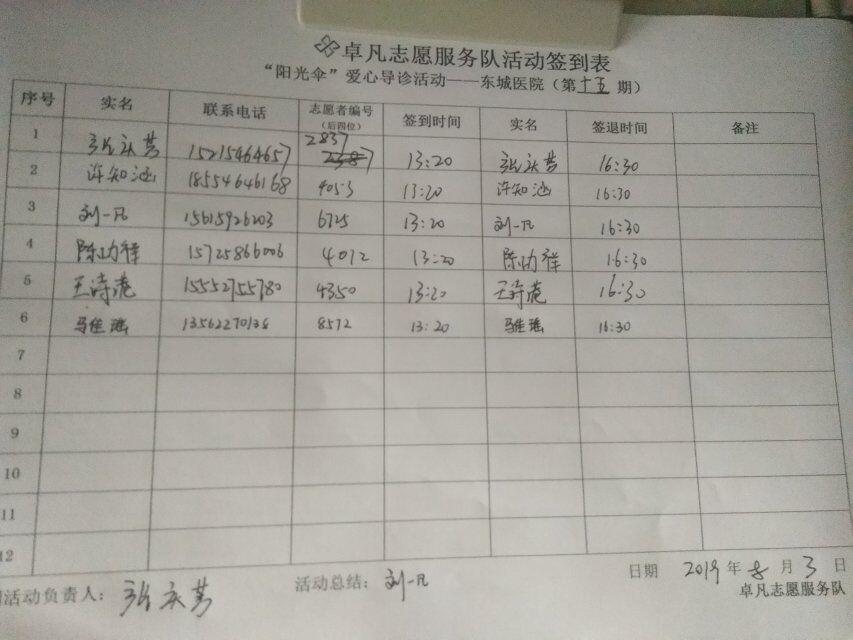 卓凡志愿服务队活动签到表
“阳光伞”爱心导诊活动——东城医院（第十五期）
序号 实名 联系电话 志愿者编号（后四位） 签到时间 实名 签退时间 备注
2837
1 张庆 15215464657 13:20 张庆 16:30
2 许知涵 18554646168 4053 13:20 许知涵 16:30
3 刘一凡 15615926203 6725 13:20 刘一凡 16:30
4 陈功祥 15725866006 4012 13:20 陈功祥 16:30
5 王诗苑 15552755780 4350 13:20 王诗苑 16:30
6 马佳瑶 13562270136 8572 13:20 马佳瑶 16:30
7
8
9
10
11
12
日期 2019年8月3日
活动负责人：张庆 活动总结：刘一凡
卓凡志愿服务队